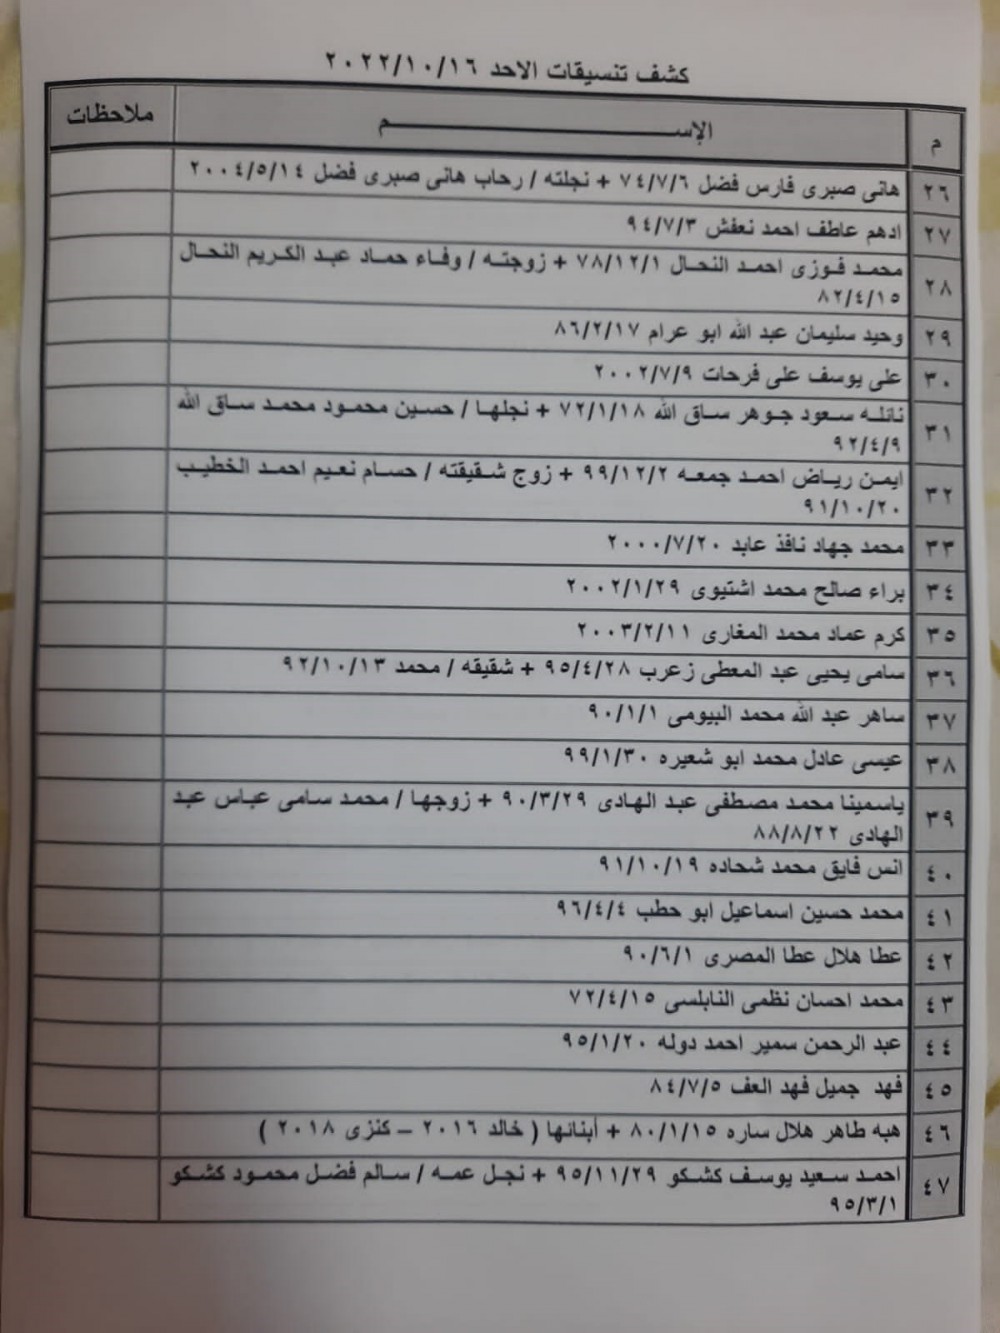 كشف تنسيقات الاحد ٢٠٢٢/١٠/١٦
م الإســـــم ملاحظات
٢٦ هانى صبرى فارس فضل ٧٤/٧/٦ + نجلته / رحاب هانى صبرى فضل ٢٠٠٤/٥/١٤
٢٧ ادهم عاطف احمد نعفش ٩٤/٧/٣
٢٨ محمد فوزى احمد النحال ٧٨/١٢/١ + زوجته / وفاء حماد عبد الكريم النحال
٨٢/٤/١٥
٢٩ وحيد سليمان عبد الله ابو عرام ٨٦/٢/١٧
٣٠ على يوسف على فرحات ٢٠٠٢/٧/٩
٣١ نائله سعود جوهر ساق الله ٧٢/١/١٨ + نجلها / حسين محمود محمد ساق الله
٩٢/٤/٩
٣٢ ايمن رياض احمد جمعه ٩٩/١٢/٢ + زوج شقيقته / حسام نعيم احمد الخطيب
٩١/١٠/٢٠
٣٣ محمد جهاد نافذ عابد ٢٠٠٠/٧/٢٠
٣٤ براء صالح محمد اشتيوى ٢٠٠٢/١/٢٩
٣٥ كرم عماد محمد المغارى ٢٠٠٣/٢/١١
٣٦ سامى يحيى عبد المعطى زعرب ٩٥/٤/٢٨ + شقيقه / محمد ٩٢/١٠/١٣
٣٧ ساهر عبد الله محمد البيومى ٩٠/١/١
٣٨ عيسى عادل محمد ابو شعيره ٩٩/١/٣٠
٣٩ ياسمينا محمد مصطفى عبد الهادى ٩٠/٣/٢٩ + زوجها / محمد سامى عباس عبد
الهادى ٨٨/٨/٢٢
٤٠ انس فايق محمد شحاده ٩١/١٠/١٩
٤١ محمد حسين اسماعيل ابو حطب ٩٦/٤/٤
٤٢ عطا هلال عطا المصرى ٩٠/٦/١
٤٣ محمد احسان نظمى النابلسى ٧٢/٤/١٥
٤٤ عبد الرحمن سمير احمد دوله ٩٥/١/٢٠
٤٥ فهد جميل فهد العف ٨٤/٧/٥
٤٦ هبه طاهر هلال ساره ٨٠/١/١٥ + أبنائها ( خالد ٢٠١٦ – كنزى ٢٠١٨ )
٤٧ احمد سعيد يوسف كشكو ٩٥/١١/٢٩ + نجل عمه / سالم فضل محمود كشكو
٩٥/٣/١